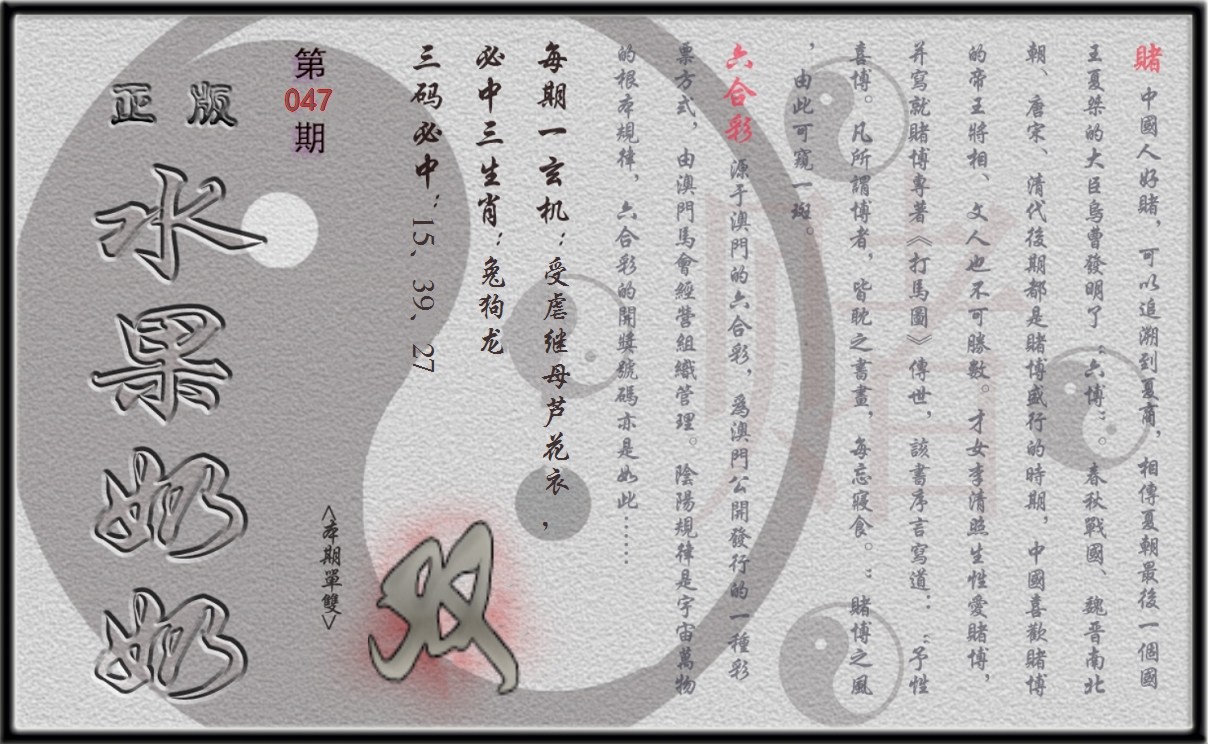 賭 中國人好賭，可以追溯到夏商，相傳夏朝最後一個國
王夏桀的大臣烏曹發明了“六博”。春秋戰國、魏晉南北
朝、唐宋、清代後期都是賭博盛行的時期，中國喜歡賭博
的帝王將相、文人也不可勝數。才女李清照生性愛賭博，
并寫就賭博專著《打馬圖》傳世，該書序言寫道：“予性
喜博。凡所謂博者，皆耽之書畫，每忘寢食。：賭博之風
，由此可窺一斑。
六合彩 源于澳門的六合彩，為澳門公開發行的一種彩
票方式，由澳門馬會經營組織管理。陰陽規律是宇宙萬物
的根本規律，六合彩的開獎號碼亦是如此……
每期一玄机：受虐继母芦花衣，
必中三生肖：兔狗龙
三码必中：15、39、27
<本期單雙>
双
第
047
期
正版
水果奶奶
赌